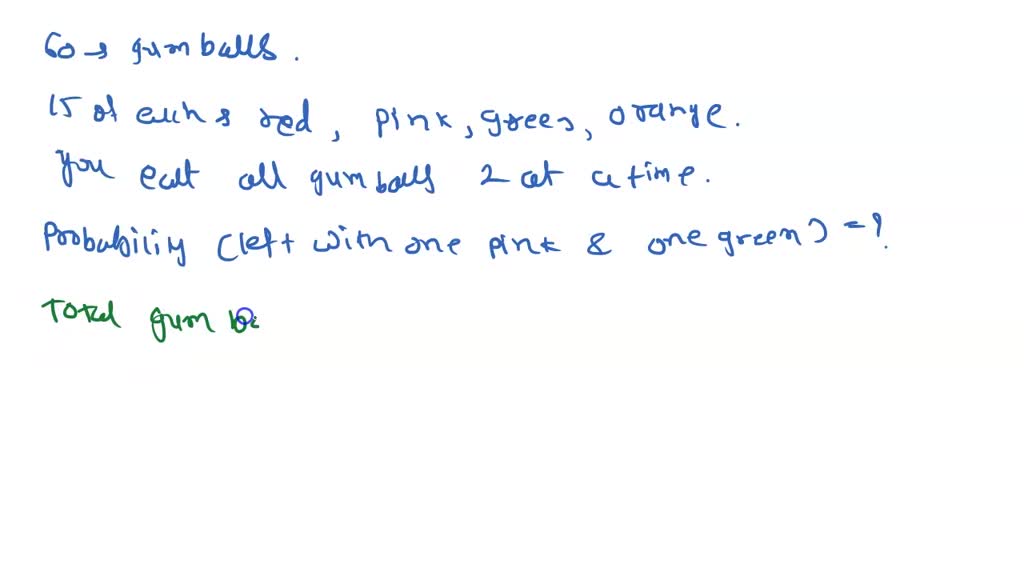 60 → gumballs.
15 of each & red, pink, green, orange.
You eat all gumballs 2 at a time.
Probability (left with one pink & one green) = ?
Total gum ba